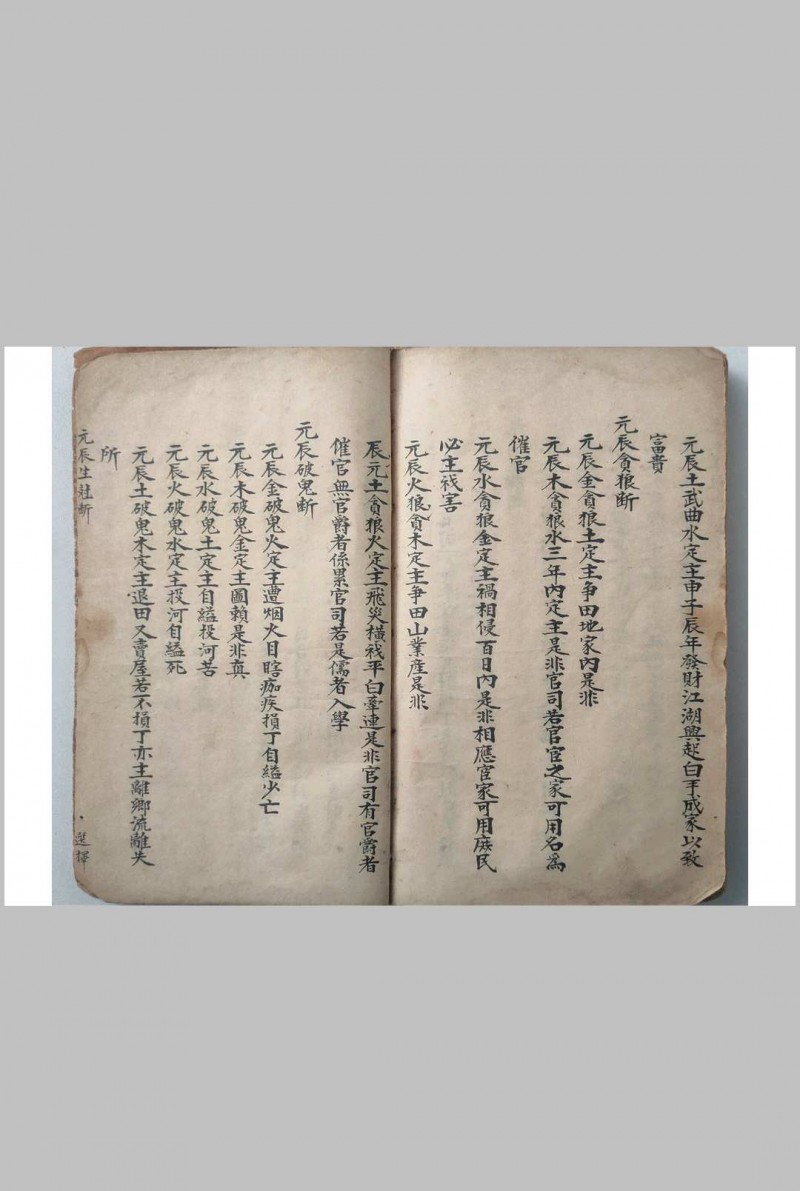 元辰土武曲水定主申子辰年發財江湖興起白手成家以致
富貴
元辰貪狼斷
元辰金貪狼土定主争田地家内是非
元辰木貪狼水三年内定主是非官司若官宦之家可用名爲
催官
元辰水貪狼金定主禍相侵百日内是非相應宦家可用庶民
必主戕害
元辰火狼貪木定主争田山業産是非
辰元土貪狼火定主飛災橫戕平白牽連是非官司有官爵者
催官無官爵者係累官司若是儒者入學
元辰破鬼斷
元辰金破鬼火定主遭烟火目瞎痂疾損丁自縊少亡
元辰木破鬼金定主圖賴是非真
元辰水破鬼土定主自縊投河苦
元辰火破鬼水定主投河自縊死
元辰土破鬼木定主退田又賣屋若不損丁亦主離鄉流離失
所
元辰生尅斷
選擇